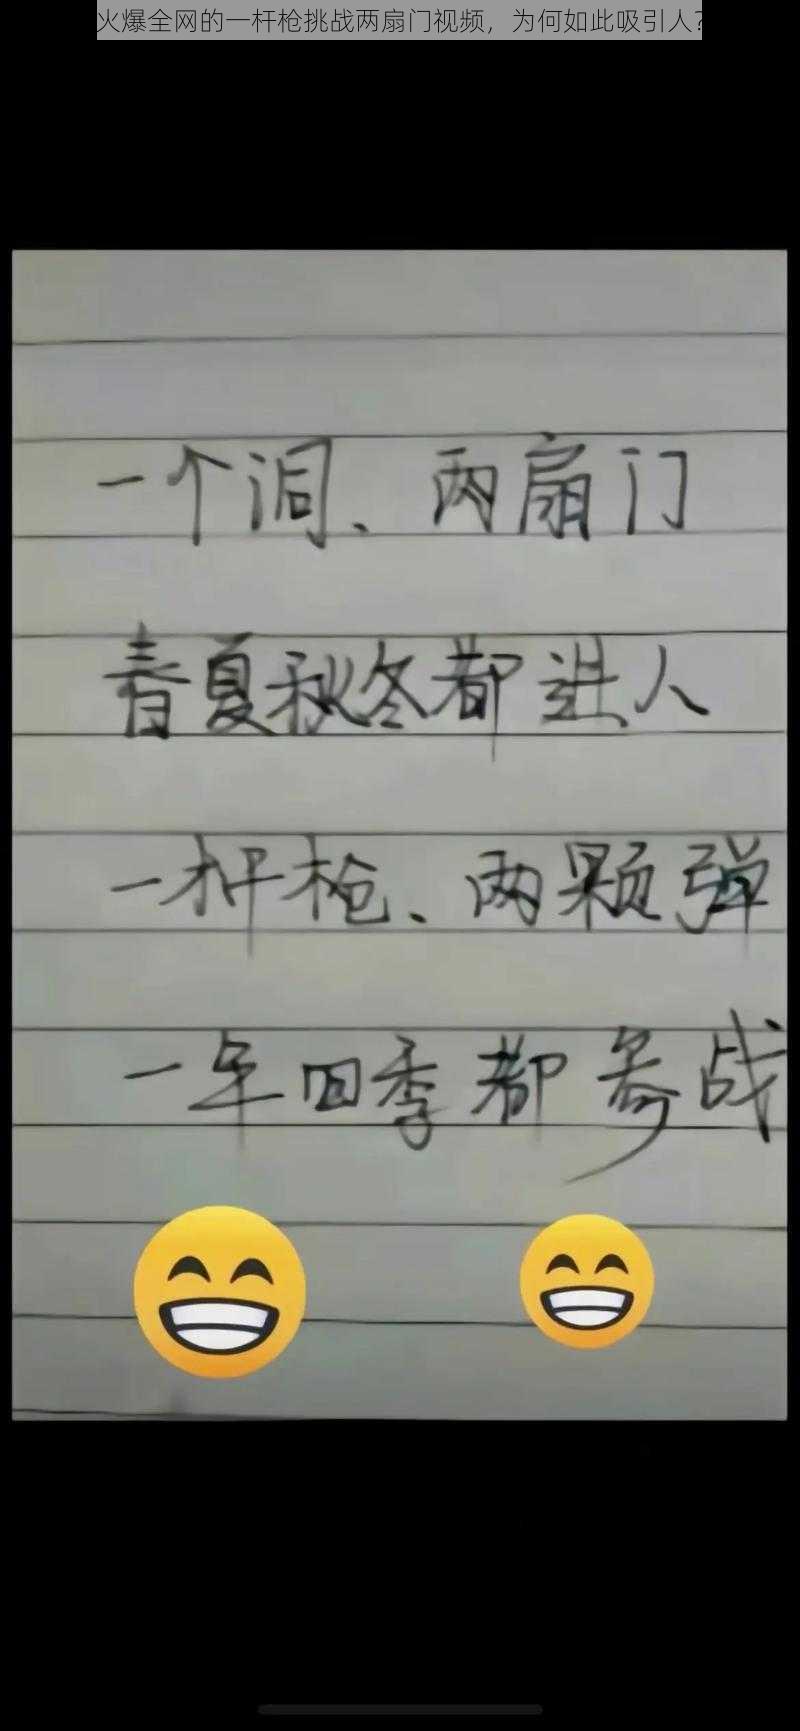 火爆全网的一杆枪挑战两扇门视频，为何如此吸引人?
一个洞、两扇门
春夏秋冬都进人
一杆枪、两颗弹
一年四季都参战